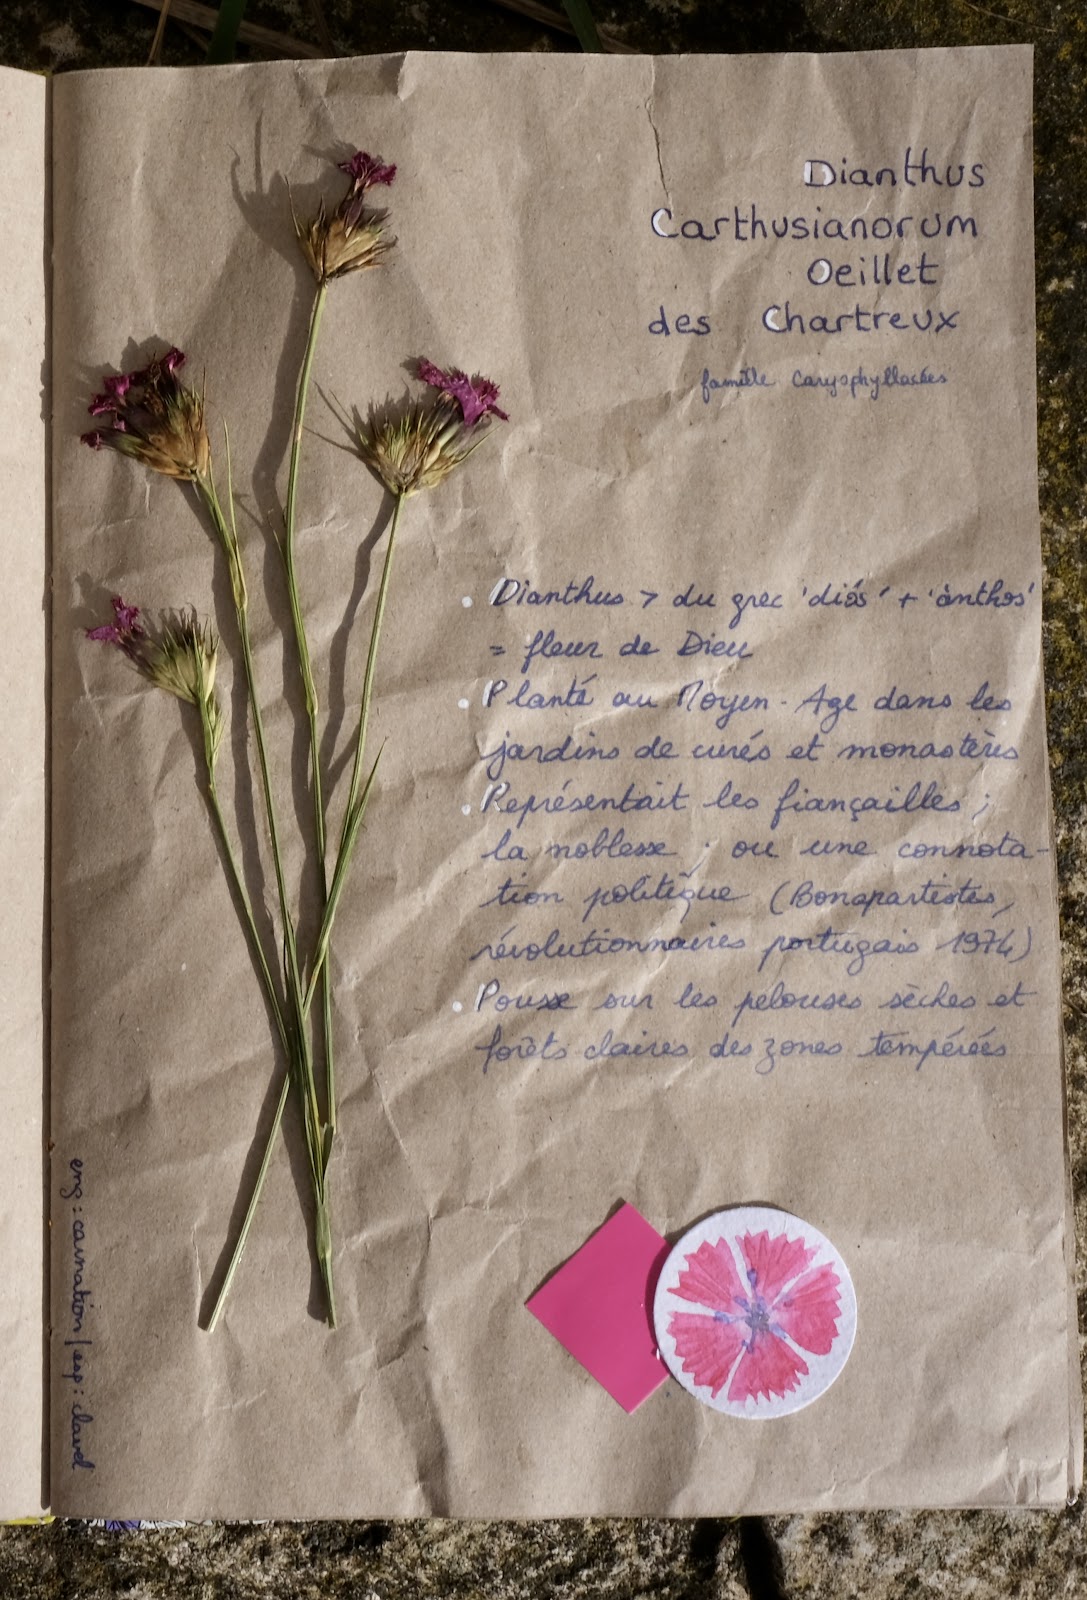 Dianthus
Carthusianorum
Oeillet
des Chartreux
famille Caryophyllacées
• Dianthus > du grec 'diós' + 'ánthos'
= fleur de Dieu
• Planté au Moyen-Age dans les
jardins de curés et monastères
• Représentait les fiançailles ;
la noblesse ; ou une connota-
tion politique (Bonapartistes,
révolutionnaires portugais 1974)
• Pousse sur les pelouses sèches et
forêts claires des zones tempérées
eng : carnation / esp : clavel